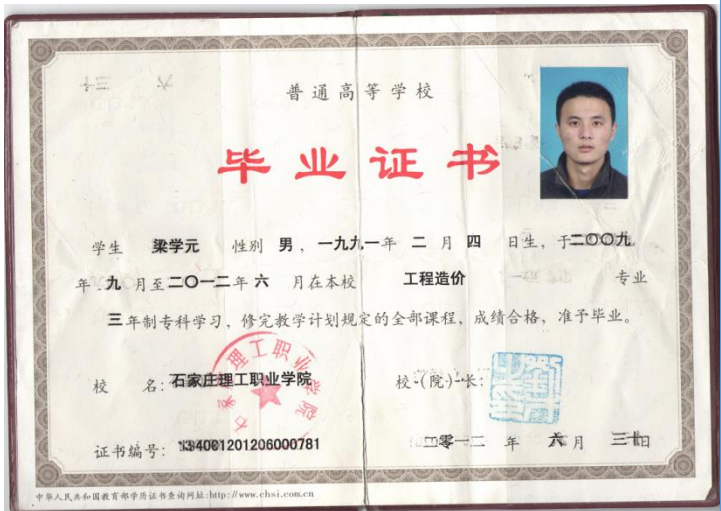 普通高等学校
毕业证书
学生 梁学元 性别 男，一九九一年 二 月 四 日生，于二〇〇九
年 九 月至二〇一二年 六 月在本校 工程造价 专业
三年制专科学习，修完教学计划规定的全部课程，成绩合格，准予毕业。
校 名：石家庄理工职业学院 校（院）长：
证书编号： 134081201206000781 二零一二 年 六 月 三十日
中华人民共和国教育部学历证书查询网址:http://www.chsi.com.cn